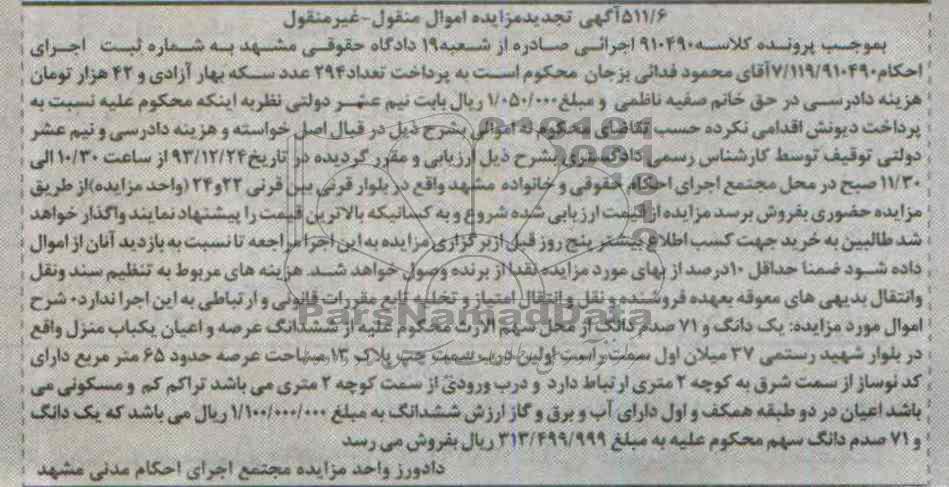 ۵۱۱/۶آگهی تجدیدمزایده اموال منقول-غیرمنقول
بموجب پرونده کلاسه۹۱۰۴۹۰ اجرائی صادره از شعبه۱۹ دادگاه حقوقی مشهد به شماره ثبت اجرای
احکام۷/۱۱۹/۹۱۰۴۹۰آقای محمود فدائی بزجان محکوم است به پرداخت تعداد۲۹۴ عدد سکه بهار آزادی و ۴۲ هزار تومان
هزینه دادرسی در حق خانم صفیه ناظمی و مبلغ۱/۰۵۰/۰۰۰ ریال بابت نیم عشر دولتی نظربه اینکه محکوم علیه نسبت به
پرداخت دیونش اقدامی نکرده حسب تقاضای محکوم له اموالی بشرح ذیل در قبال اصل خواسته و هزینه دادرسی و نیم عشر
دولتی توقیف توسط کارشناس رسمی دادگستری بشرح ذیل ارزیابی و مقرر گردیده در تاریخ۹۳/۱۲/۲۴ از ساعت ۱۰/۳۰ الی
۱۱/۳۰ صبح در محل مجتمع اجرای احکام حقوقی و خانواده مشهد واقع در بلوار قرنی بین قرنی ۲۲و۲۴ (واحد مزایده)از طریق
مزایده حضوری بفروش برسد مزایده از قیمت ارزیابی شده شروع و به کسانیکه بالاترین قیمت را پیشنهاد نمایند واگذار خواهد
شد طالبین به خرید جهت کسب اطلاع بیشتر پنج روز قبل ازبرگزاری مزایده به این اجرا مراجعه تا نسبت به بازدید آنان از اموال
داده شود ضمنا حداقل ۱۰درصد از بهای مورد مزایده نقدا از برنده وصول خواهد شد. هزینه های مربوط به تنظیم سند ونقل
وانتقال بدیهی های معوقه بعهده فروشنده و نقل و انتقال امتیاز و تخلیه تابع مقررات قانونی و ارتباطی به این اجرا ندارد۰ شرح
اموال مورد مزایده: یک دانگ و ۷۱ صدم دانگ از محل سهم الارث محکوم علیه از ششدانگ عرصه و اعیان یکباب منزل واقع
در بلوار شهید رستمی ۳۷ میلان اول سمت راست اولین درب سمت چپ پلاک ۱۳ مساحت عرصه حدود ۶۵ متر مربع دارای
کد نوساز از سمت شرق به کوچه ۲ متری ارتباط دارد و درب ورودی از سمت کوچه ۲ متری می باشد تراکم کم و مسکونی می
باشد اعیان در دو طبقه همکف و اول دارای آب و برق و گاز ارزش ششدانگ به مبلغ ۱/۱۰۰/۰۰۰/۰۰۰ ریال می باشد که یک دانگ
و ۷۱ صدم دانگ سهم محکوم علیه به مبلغ ۳۱۳/۴۹۹/۹۹۹ ریال بفروش می رسد
دادورز واحد مزایده مجتمع اجرای احکام مدنی مشهد
ParsNamadData